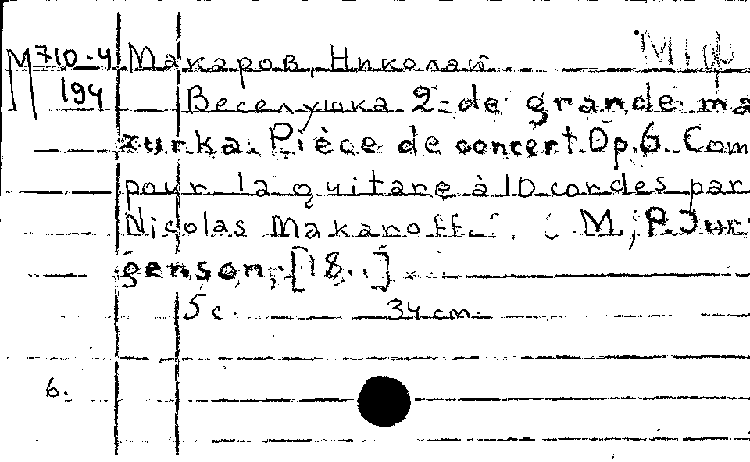 М 710-4 Макаров, Николай. М1ф
194 Веселушка 2-de grande ma
zurka. Pièce de concert. Op. 6. Com
pour la guitare à 10 cordes par
Nicolas Makaroff. M., P. Jur
genson, [18..]
5 с. 34 cm.
6.